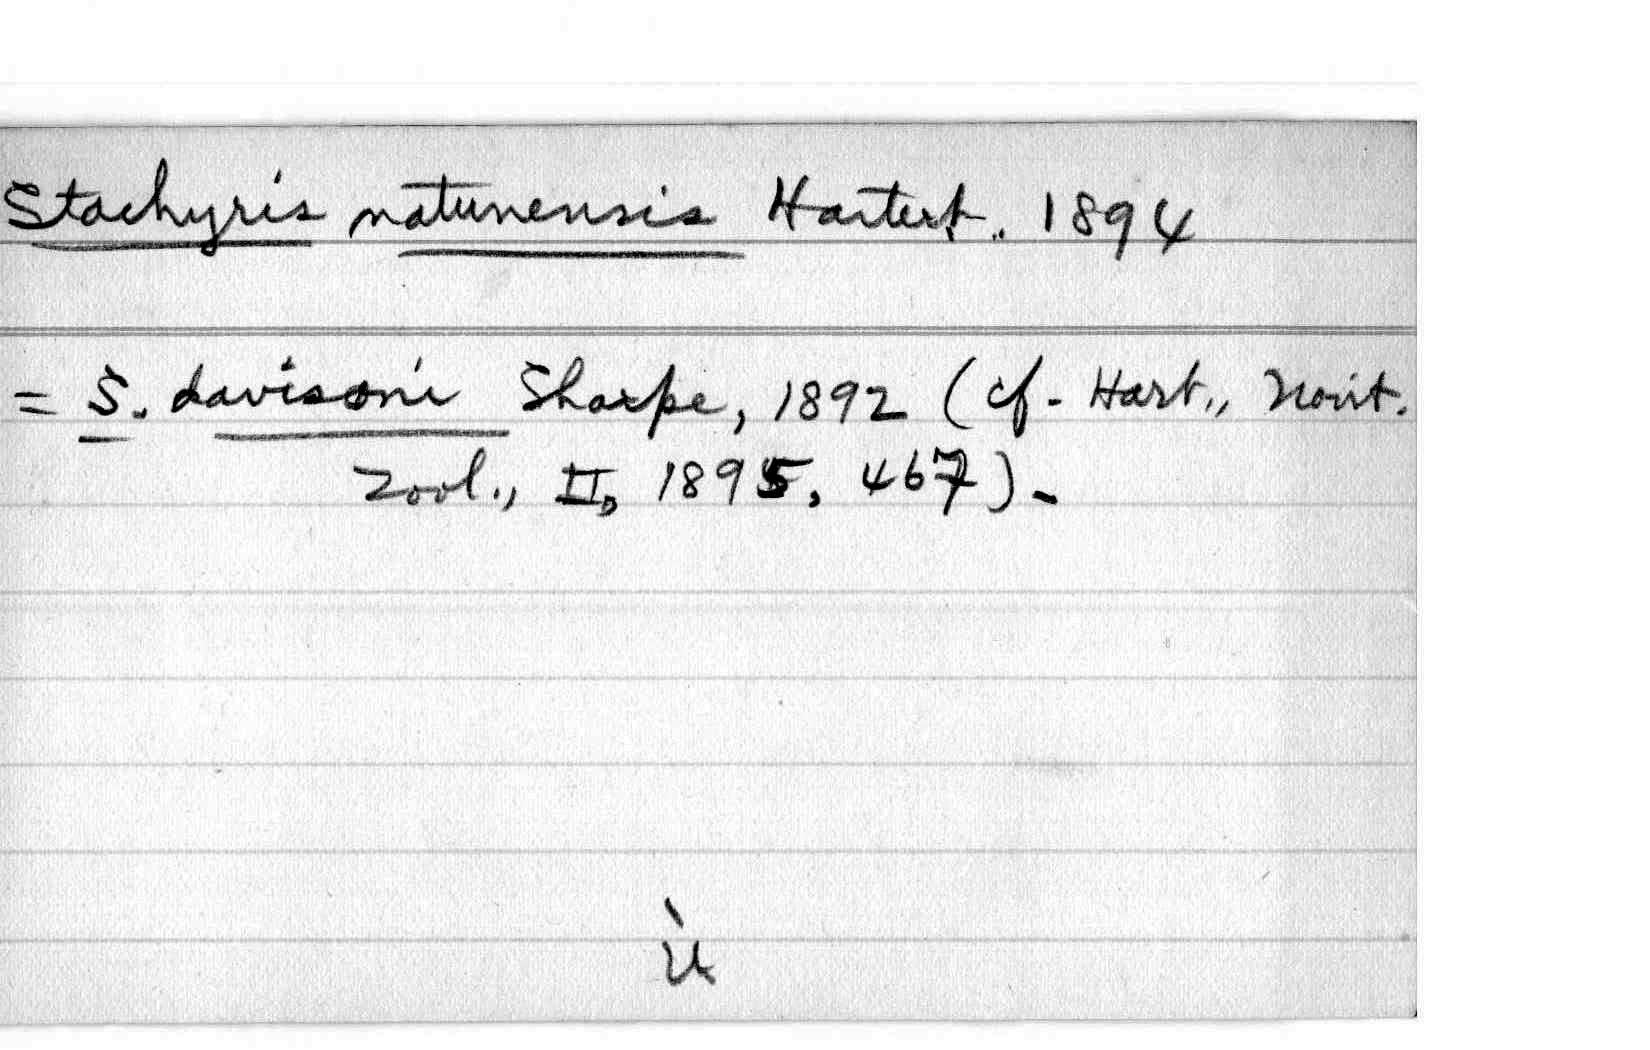 Stachyris natunensis Hartert. 1894
= S. davisoni Sharpe, 1892 (cf. Hart., Novit.
Zool., II, 1895, 467).